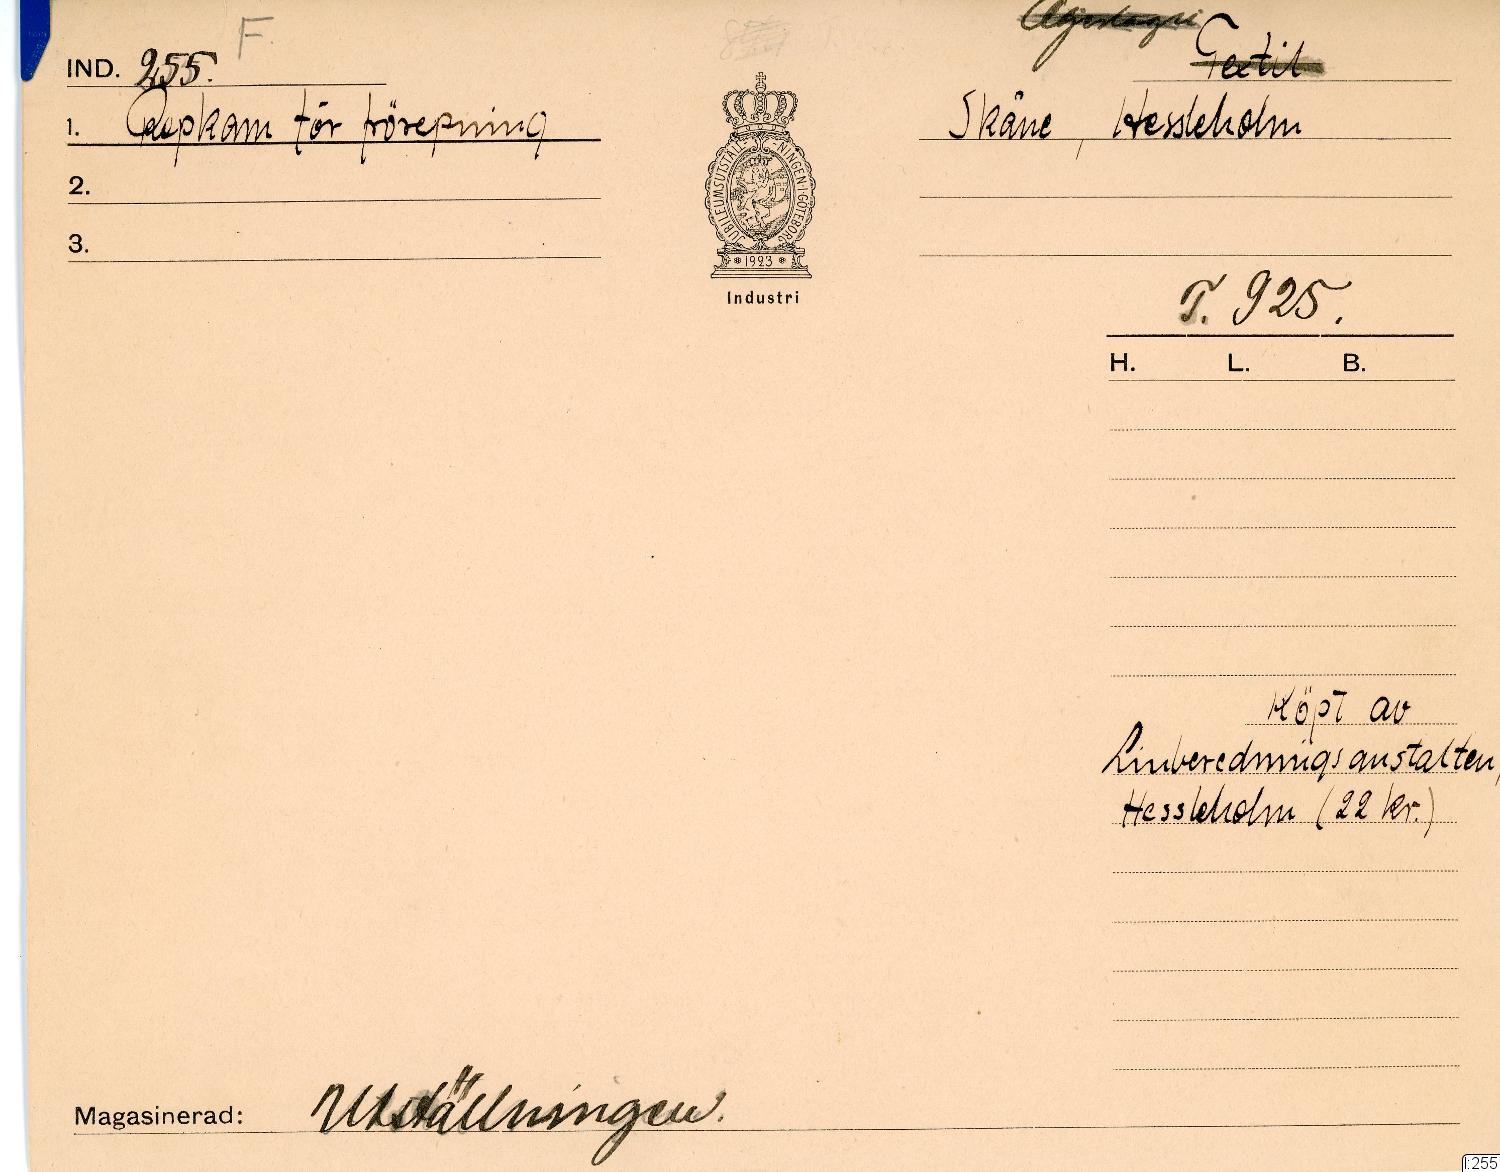 F.
Textil
IND. 255.
1. Repkam för frörepning
Skåne, Hessleholm
2.
3.
JUBILEUMSUTSTÄLLNINGEN·I·GÖTEBORG
1923
Industri
T. 925.
H. L. B.
Köpt av
Linberedningsanstalten,
Hessleholm (22 kr.)
Magasinerad: Utställningen.
I:255